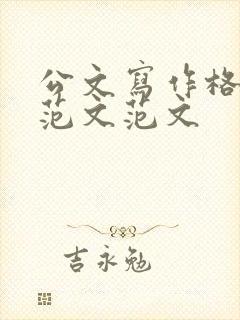 公文寫作格
范文范文
吉永勉